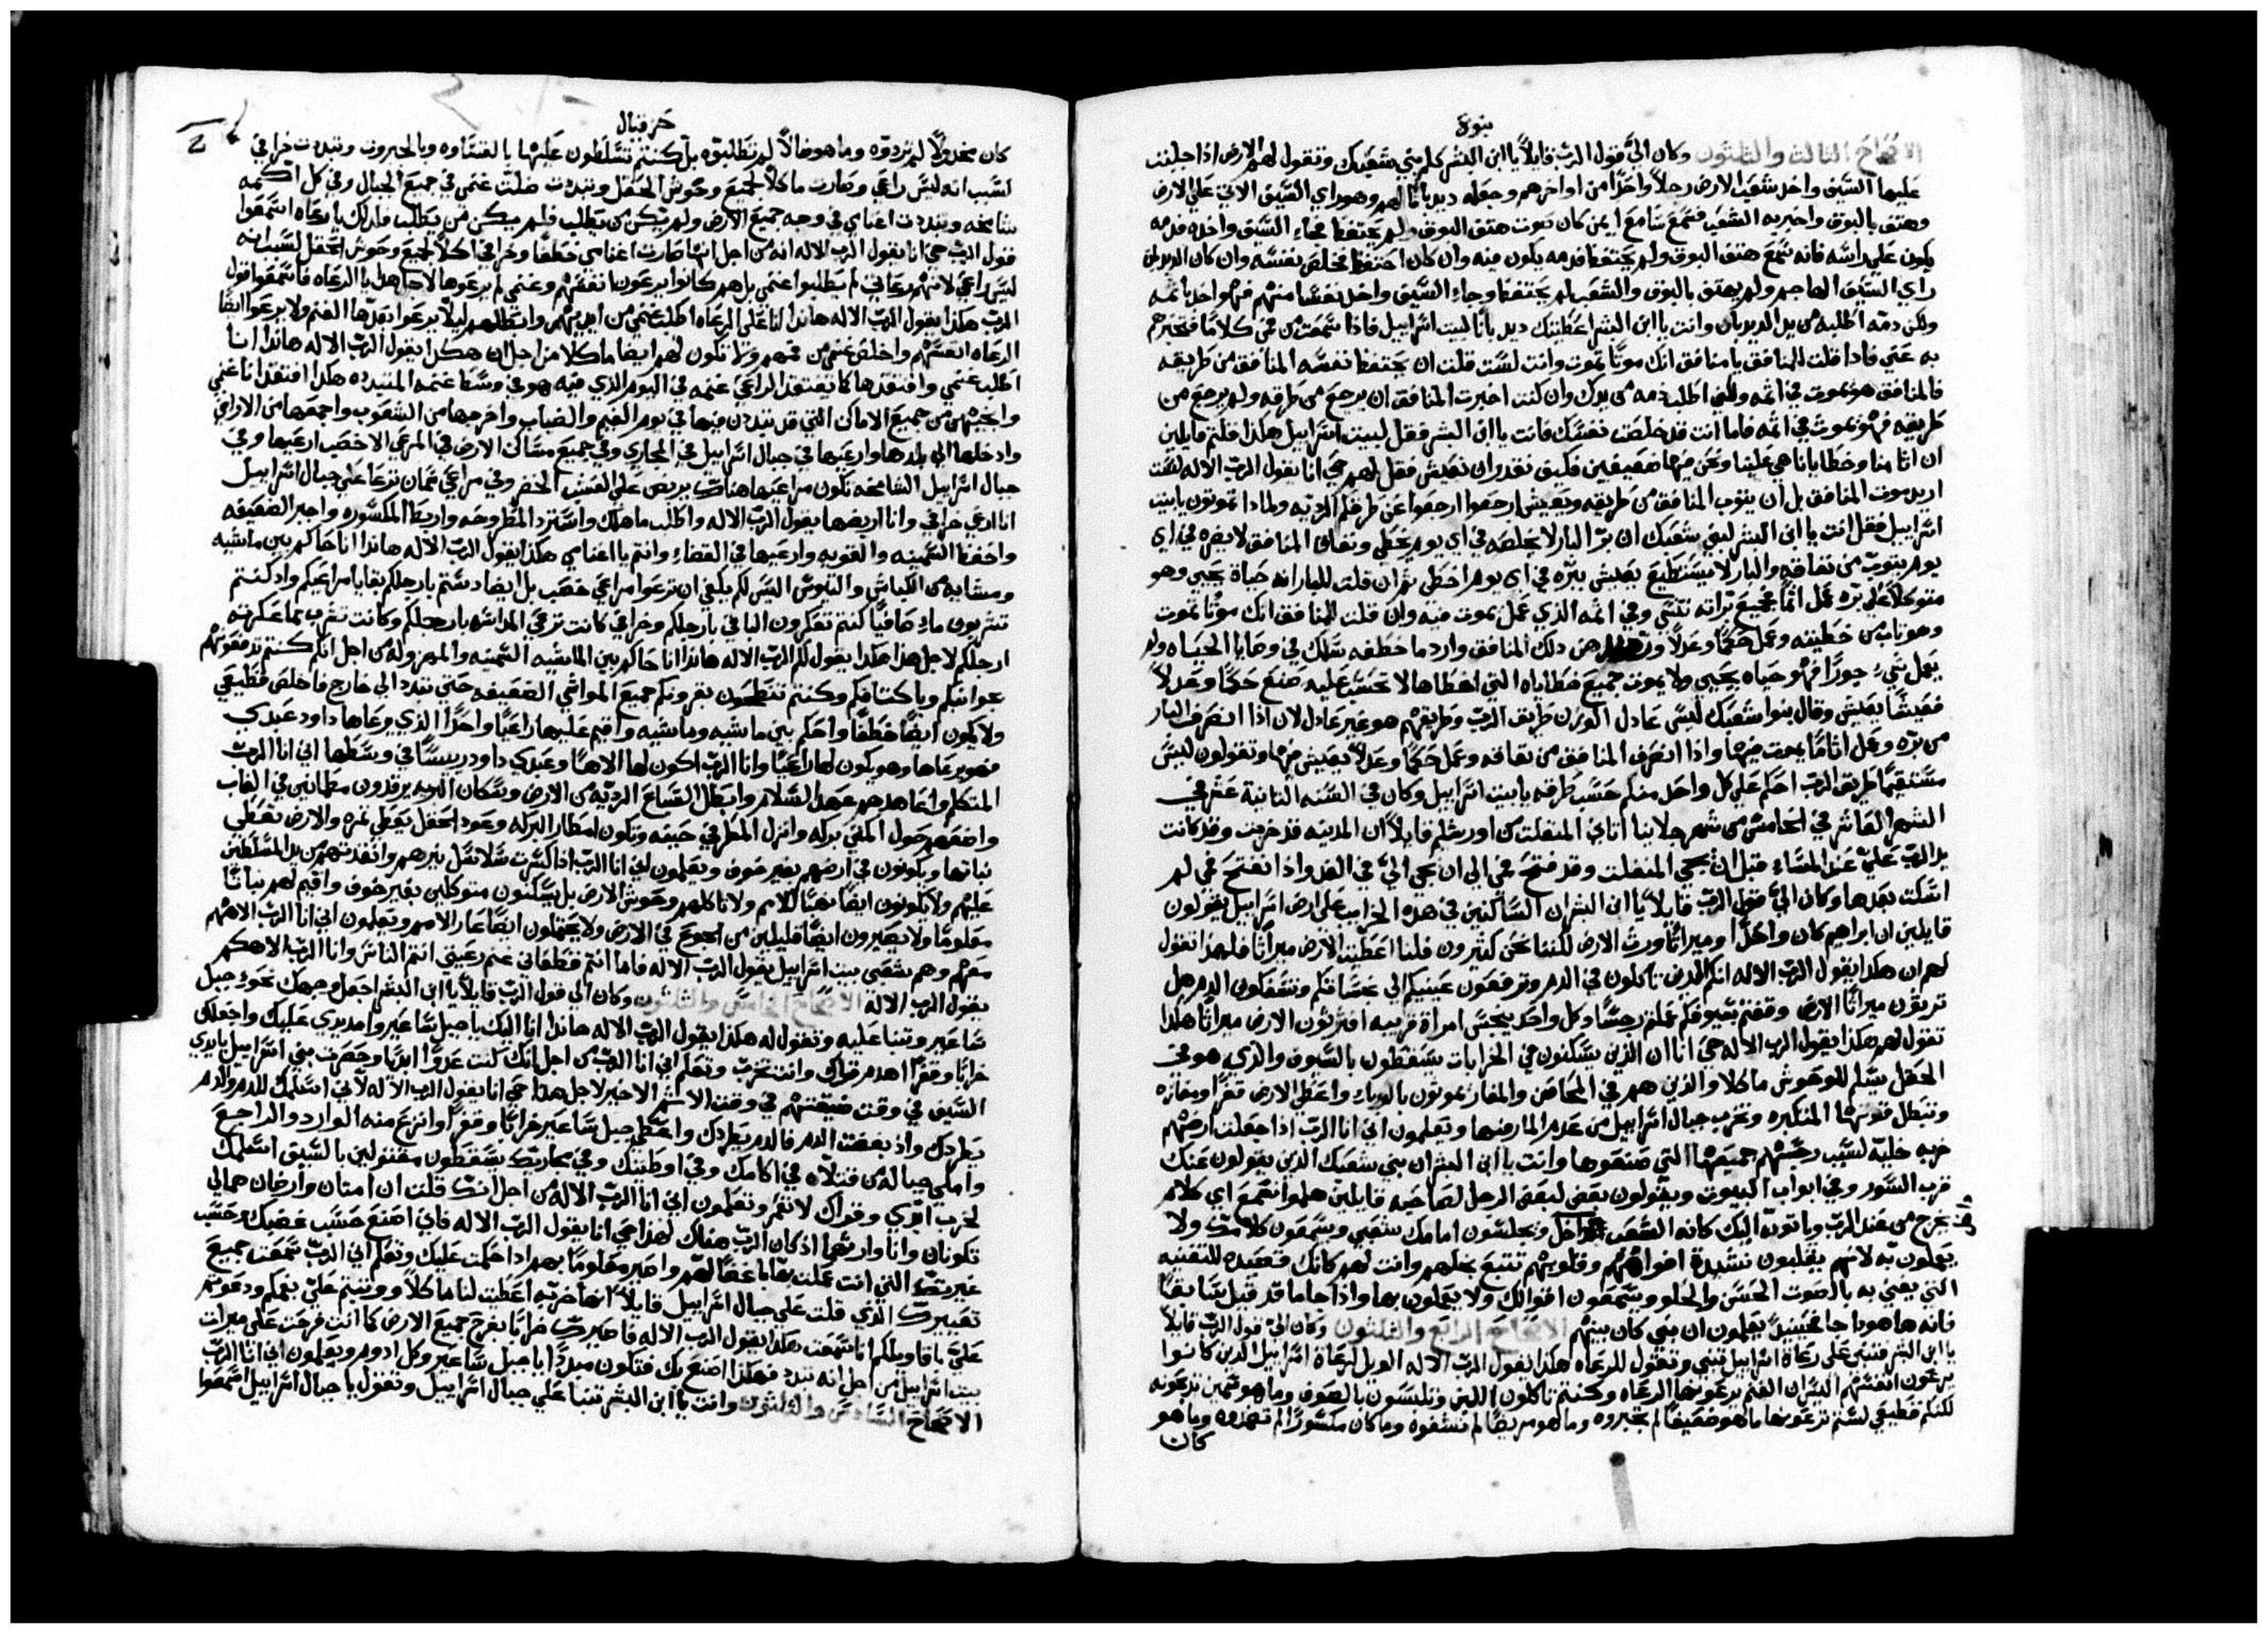 نبوة
الاصحاح الثالث والثلثون وكان اليّ قول الربّ قايلاً يا ابن البشر كلم بني شعبك وتقول لهم الارض اذا جلبت
عليها السيف واخذ شعب الارض رجلاً واحدًا من اواخرهم وجعله ديدبانًا لهم وهو راي السيف الاتي علي الارض
وهتف بالبوق واخبر به الشعب فسمع سامع ايمن كان صوت هتف البوق ولم يحتفظ فجاء السيف واخذه فدمه
يكون علي راسه فانه سمع هتف البوق ولم يحتفظ فدمه يكون فيه وان كان احتفظ فخلص نفسه وان كان الديدبان
راي السيف الهاجم ولم يهتف بالبوق والشعب لم يحتفظ وجاء السيف واخذ نفسًا منهم فهو اخذ باثمه
ولكن دمه اطلبه من يد الديدبان وانت يا ابن البشر اعطيتك ديدبانًا لبيت اسراييل فاذا سمعت من في كلامًا فتخبرهم
به عني فاذا قلت للمنافق يا منافق انك موتًا تموت وانت لست قلت ان يحتفظ نفسه المنافق من طريقه
فالمنافق هو يموت في اثمه ولكني اطلب دمه من يدك وان كنت اخبرت المنافق ان يرجع من طرقه ولم يرجع من
طريقه فهو يموت في اثمه فاما انت قد خلصت نفسك فانت يا ابن البشر فقل لبيت اسراييل هكذا قلتم قايلين
ان اثامنا وخطايانا هي علينا ونحن فيها ضعيفين فكيف نقدر ان نعيش فقل لهم حي انا يقول الربّ الاله لست
اريد موت المنافق بل ان يتوب المنافق من طريقه ويعيش ارجعوا ارجعوا عن طرقكم الرديه ولماذا تموتون يا بيت
اسراييل فقل انت يا ابن البشر لبني شعبك ان برّ البار لا يخلصه في اي يوم يخطي ونفاق المنافق لا يضره في اي
يوم يتوب من نفاقه والبار لا يستطيع يعيش ببرّه في اي يوم اخطي ثم ان قلت للبار انه حياة يحيي وهو
متوكلاً علي برّه عمل اثمًا فجميع برّاته تنسي وفي اثمه الذي عمل يموت فيه وان قلت للمنافق انك موتًا تموت
وهو تاب من خطيته وعمل حكمًا وعدلاً ورهن ذلك المنافق وارد ما خطفه سلك في وصايا الحياه ولم
يعمل شيء جورًا فهو حياه يحيي ولا يموت جميع خطاياه التي اخطاها لا تحسب عليه صنع حكمًا وعدلاً
فعيشًا يعيش وقال بنوا شعبك ليس عادل الوزن طريق الربّ وطريقهم هو غير عادل لان اذا انصرف البار
من برّه وعمل اثامًا يموت فيها واذا انصرف المنافق من نفاقه وعمل حكمًا وعدلاً يعيش فيها وتقولون ليس
مستقيمًا طريق الربّ احكم علي كل واحد منكم حسب طرقه يا بيت اسراييل وكان في السنه الثانية عشر في
الشهر العاشر في الخامس من شهر جلاينا اتاني المنفلت من اورشليم قايلاً ان المدينه قد خربت وقد كانت
يد الربّ عليّ عند المساء قبل ان يجي المنفلت وقد فتح في الي ان يجي اليّ في الغد واذا نفتح في لم
اسكت بعدها وكان اليّ قول الربّ قايلاً يا ابن البشر ان الساكنين في هذه الخراب علي ارض اسراييل يقولون
قايلين ان ابراهيم كان واحدًا وميراثًا ورث الارض لكننا نحن كثيرون فلنا اعطيت الارض ميراثًا فلهذا تقول
لهم ان هكذا يقول الربّ الاله انكم الذين تاكلون في الدم وترفعون عينيكم الي نجساتكم وتسفكون الدم هل
ترثون ميراثًا الارض وقفتم بسيوفكم عملتم رجسًا وكل واحد ينجس امراة قريبه افترثون الارض ميراثًا هكذا
تقول لهم هكذا يقول الرب الاله حي انا ان الذين يسكنون في الخرابات يسقطون بالسيوف والذي هو في
الحقل يسلم للوحوش ماكلا والذين هم في المحاصن والمغاير يموتون بالوباء واعطي الارض قفرًا ومفازه
وتبطل قوتها المتكبره وتخرب جبال اسراييل من عدم المار فيها وتعلمون اني انا الربّ اذا جعلت ارضهم
خربه خليّه لسبب رجسهم جميعها التي صنعوها وانت يا ابن البشر ان بني شعبك الذين يقولون عنك
قرب السور وفي ابواب البيوت ويقولون بعض لبعض الرجل لصاحبه قايلين هلموا نسمع اي كلام
يخرج من عند الربّ وياتوه اليك كانه الشعب داخل ويجلسون امامك شعبي ويسمعون كلامك ولا
يعملون به لانهم يقلبون نشيدة افواههم وقلوبهم تتبع بخلهم وانت لهم كانك قصيده للتغنيه
التي يغني به بالصوت الحسن والحلو ويسمعون اقوالك ولا يعملون بها واذا جا ما قد قيل سابقًا
فانه ها هوذا جا فحينيذٍ يعلمون ان نبي كان بينهم الاصحاح الرابع والثلثون وكان اليّ قول الربّ قايلاً
يا ابن البشر فتنبي علي رعاة اسراييل تنبي وتقول للرعاه هكذا يقول الربّ الاله الويل لرعاة اسراييل الذين كانوا
يرعون انفسهم اليس ان الغنم يرعونها الرعاه وكنتم تاكلون اللبن وتلبسون بالصوف وما هو سمين تذبحونه
لكنكم قطيعي لستم ترعونها ما هو ضعيفًا لم تجبروه وما هو مريضًا لم تشفوه وما كان مكسورًا لم تعمدوه وما هو
كان
حزقيال
كان مخذولاً لم تردوه وما هو ضالاً لم تطلبوه بل كنتم تتسلطون عليها بالقساوه وبالجبروت وتبددت خرافي
لسبب انه ليس راعي وصارت ماكلاً لجميع وحوش الحقل وتبددت ضلت غنمي في جميع الجبال وفي كل اكمه
شامخه وتبددت اغنامي في وجه جميع الارض ولم يكن من يطلب فلم يكن من يطلب فلذلك يا رعاه اسمعوا
قول الربّ حي انا يقول الرب الاله انه من اجل انها صارت اغنامي خطفًا وخرافي اكلاً لجميع وحوش الحقل لسبب انه
ليس راعي لانهم رعاتي لم يطلبوا غنمي بل هم كانوا يرعون انفسهم وغنمي لم يرعوها لاجل هذا يا الرعاه فاسمعوا قول
الربّ هكذا يقول الربّ الاله هانذا انا علي الرعاه اطلب غنمي من ايديهم وابطلهم ليلاّ يرعوا بعدها الغنم ولا يرعوا ايضًا
الرعاه انفسهم واخلص غنمي من فمهم ولا تكون لهم ايضا ماكلا من اجل ان هكذا يقول الربّ الاله هانذا انا
اطلب غنمي وافتقدها كما يفتقد الراعي غنمه في اليوم الذي فيه هو في وسط غنمه المتبدده هكذا افتقد انا غنمي
وانجيهم من جميع الاماكن التي قد تبددن فيها في يوم الغيم والضباب واخرجها من الشعوب واجمعها من الاراضي
وادخلها الي بلدها وارعيها في جبال اسراييل في المجاري وفي جميع مساكن الارض في المرعي الاخصب ارعيها وفي
جبال اسراييل الشامخه تكون مراعيها هناك يربض علي العشب الخضر وفي مراعي سمان ترعا علي جبال اسراييل
انا ارعي خرافي وانا اربضها يقول الربّ الاله واطلب ما هلك واسترد المطروحه واربط المكسوره واجبر الضعيفه
واحفظ السمينه والقويه وارعيها في القضاء وانتم يا اغنامي هكذا يقول الربّ الاله هانذا انا حاكم بين ماشيه
وماشيه من الكباش والتيوس اليس لكم يكفي ان ترعوا مراعي خصب بل ايضا دستم بارجلكم بقايا مراعيكم واذ كنتم
تشربون ماءٍ صافيًا كنتم تعكرون الباقي بارجلكم وخرافي كانت ترعي المداسه بارجلكم وكانت تشرب مما عكرته
ارجلكم لاجل هذا هكذا يقول لكم الربّ الاله هانذا انا حاكم بين الماشيه السمينه والمهزوله من اجل انكم كنتم تدفعونهم
عواتقكم وباكتافكم وكنتم تنطحون بقرونكم جميع المواشي الضعيفه حتي تتبدد الي خارج فاخلص قطيعي
ولا يكون ايضًا خطفًا واحكم بين ماشيه وماشيه واقيم عليها راعيًا واحدًا الذي يرعاها داود عبدي
فهو يرعاها وهو يكون لها راعيًا وانا الربّ اكون لها الاهًا وعبدي داود رييسًا في وسطها اني انا الربّ
المتكلم واعاهدهم عهد السلام وابطل السباع الرديّه من الارض وسكان البريه يرقدون مطمانين في الغاب
واضعهم حول اكمتي بركه وانزل المطر في حينه وتكون امطار البركه وعود الحقل يعطي ثمره والارض تعطي
نباتها ويكونون في ارضهم بغير خوف ويعلمون اني انا الربّ اذا كسرت سلاسل نيرهم وانقذتهم من يد المتسلطين
عليهم ولا يكونون ايضًا نهبًا للامم ولا تاكلهم وحوش الارض بل يسكنون متوكلين بغير خوف واقيم لهم نباتًا
معلومًا ولا يصيرون ايضًا قليلين من الجوع في الارض ولا يحتملون ايضًا عار الامم ويعلمون اني انا الربّ الاههم
معهم وهم شعبي بيت اسراييل يقول الربّ الاله فاما انتم قطعاني غنم رعيتي انتم الناس وانا الربّ الاهكم
يقول الرب الاله الاصحاح الخامس والثلثون وكان الي قول الربّ قايلاً يا ابن البشر اجعل وجهك نحو جبل
ساعير وتنبا عليه وتقول له هكذا يقول الربّ الاله هانذا انا اليك يا جبل ساعير وامد يدي عليك واجعلك
خرابًا وقفرًا اهدم قراك وانت تخرب وتعلم اني انا الربّ من اجل انك كنت عدوًا ابديًا وحصرت بني اسراييل بايدي
السيف في وقت ضيقتهم في وقت الاثم الاخير لاجل هذا حي انا يقول الرب الاله لاني اسلمك للدم والدم
يطردك واذ بغضت الدم فالدم يطردك واعطي جبل ساعير خرابًا وقفرًا وانزع منه الوارد والراجع
واملي جباله من قتلاه في اكامك وفي اوطيتك وفي مجاريك يسقطون مقتولين بالسيف اسلمك
لخرب ابدي وقراك لا تعمر وتعلمون اني انا الربّ الاله من اجل انك قلت ان امتان وارضان هما لي
تكونان وانا وارثهما اذ كان الربّ هناك لهذا حي انا يقول الربّ الاله فاني اصنع حسب غضبك وحسب
غيرتك التي انت عملت بقا باغضًا لهم واصير معلومًا بهم اذا حكمت عليك وتعلم اني الربّ سمعت جميع
تعييرك الذي قلت علي جبال اسراييل قايلاً انها خربه اعطيت لنا ماكلاً ووثبتم عليّ بفمكم ودعوتم
عليّ باقاويلكم انا سمعت هكذا يقول الرب الاله فاصيرك خرابًا بفرح جميع الارض كما انت فرحت علي ميراث
بيت اسراييل من اجل انه تبدد فهكذا اصنع بك فتكون مبددًا يا جبل ساعير وكل ادوم ويعلمون اني انا الربّ
الاصحاح السادس والثلثون وانت يا ابن البشر تنبا علي جبال اسراييل وتقول يا جبال اسراييل اسمعوا